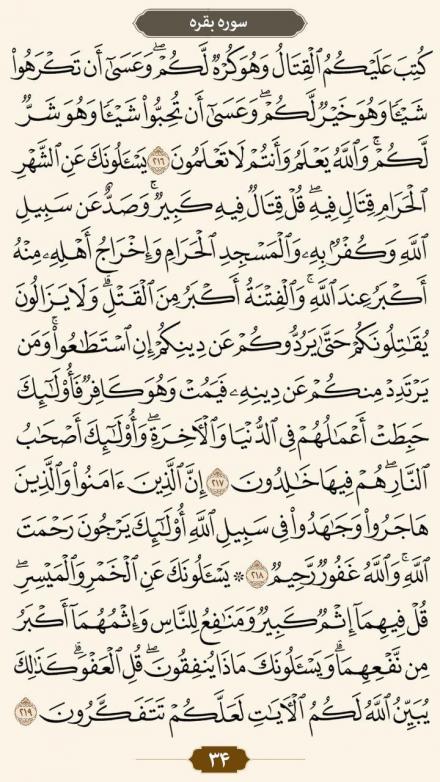 سوره بقره
كُتِبَ عَلَيْكُمُ ٱلْقِتَالُ وَهُوَ كُرْهٌ لَّكُمْ ۖ وَعَسَىٰٓ أَن تَكْرَهُوا۟
شَيْـًٔا وَهُوَ خَيْرٌ لَّكُمْ ۖ وَعَسَىٰٓ أَن تُحِبُّوا۟ شَيْـًٔا وَهُوَ شَرٌّ
لَّكُمْ ۗ وَٱللَّهُ يَعْلَمُ وَأَنتُمْ لَا تَعْلَمُونَ ۝٢١٦ يَسْـَٔلُونَكَ عَنِ ٱلشَّهْرِ
ٱلْحَرَامِ قِتَالٍ فِيهِ ۖ قُلْ قِتَالٌ فِيهِ كَبِيرٌ ۖ وَصَدٌّ عَن سَبِيلِ
ٱللَّهِ وَكُفْرٌۢ بِهِۦ وَٱلْمَسْجِدِ ٱلْحَرَامِ وَإِخْرَاجُ أَهْلِهِۦ مِنْهُ
أَكْبَرُ عِندَ ٱللَّهِ ۚ وَٱلْفِتْنَةُ أَكْبَرُ مِنَ ٱلْقَتْلِ ۗ وَلَا يَزَالُونَ
يُقَـٰتِلُونَكُمْ حَتَّىٰ يَرُدُّوكُمْ عَن دِينِكُمْ إِنِ ٱسْتَطَـٰعُوا۟ ۚ وَمَن
يَرْتَدِدْ مِنكُمْ عَن دِينِهِۦ فَيَمُتْ وَهُوَ كَافِرٌ فَأُو۟لَـٰٓئِكَ
حَبِطَتْ أَعْمَـٰلُهُمْ فِى ٱلدُّنْيَا وَٱلْـَٔاخِرَةِ ۖ وَأُو۟لَـٰٓئِكَ أَصْحَـٰبُ
ٱلنَّارِ ۖ هُمْ فِيهَا خَـٰلِدُونَ ۝٢١٧ إِنَّ ٱلَّذِينَ ءَامَنُوا۟ وَٱلَّذِينَ
هَاجَرُوا۟ وَجَـٰهَدُوا۟ فِى سَبِيلِ ٱللَّهِ أُو۟لَـٰٓئِكَ يَرْجُونَ رَحْمَتَ
ٱللَّهِ ۚ وَٱللَّهُ غَفُورٌ رَّحِيمٌ ۝٢١٨ ۞ يَسْـَٔلُونَكَ عَنِ ٱلْخَمْرِ وَٱلْمَيْسِرِ ۖ
قُلْ فِيهِمَآ إِثْمٌ كَبِيرٌ وَمَنَـٰفِعُ لِلنَّاسِ وَإِثْمُهُمَآ أَكْبَرُ
مِن نَّفْعِهِمَا ۗ وَيَسْـَٔلُونَكَ مَاذَا يُنفِقُونَ ۖ قُلِ ٱلْعَفْوَ ۗ كَذَٰلِكَ
يُبَيِّنُ ٱللَّهُ لَكُمُ ٱلْـَٔايَـٰتِ لَعَلَّكُمْ تَتَفَكَّرُونَ ۝٢١٩
۳۴